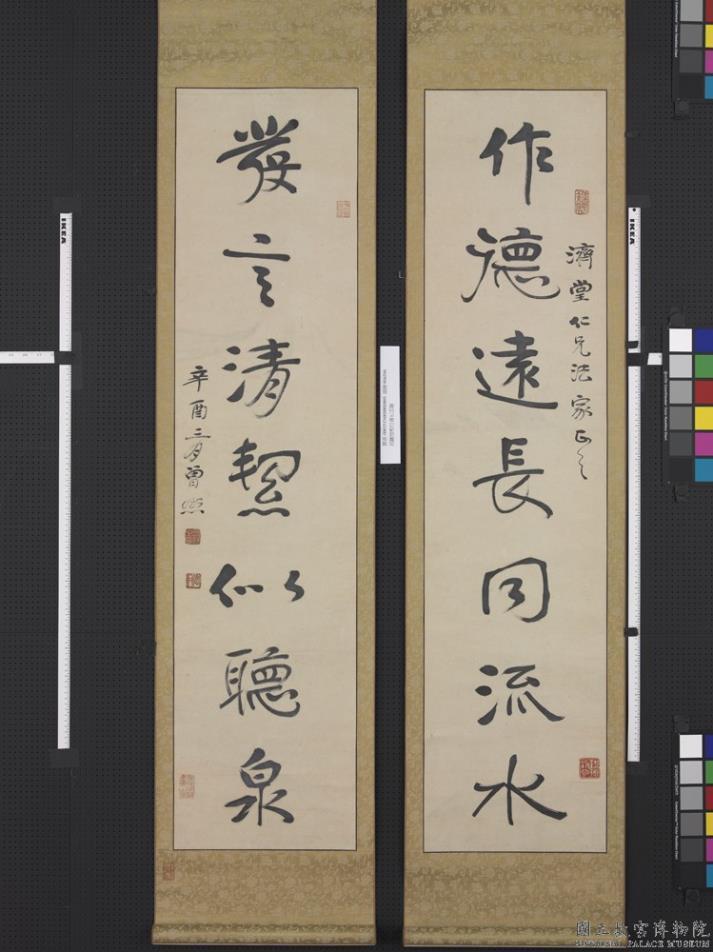 作德遠長同流水
濟堂仁兄法家正之
發言清絜似聽泉
辛酉三月曾熙
IKEA
IKEA
國立故宮博物院
NATIONAL PALACE MUSEUM